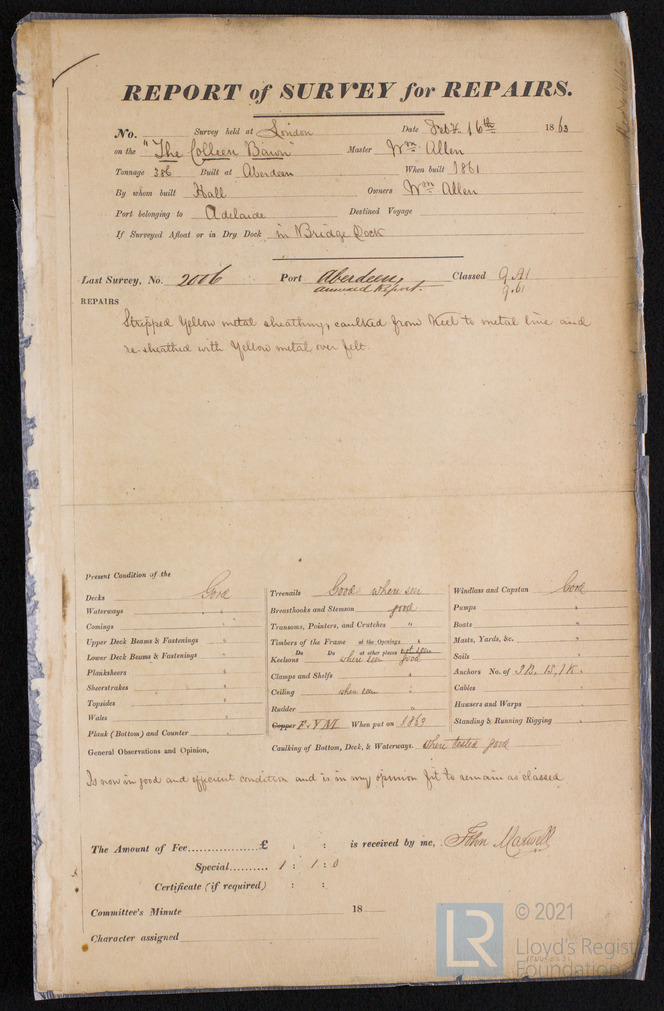 REPORT of SURVEY for REPAIRS.
No. Survey held at London Date Feb.y 16th 1863
on the "The Colleen Bawn" Master Wm Allen
Tonnage 386 Built at Aberdeen When built 1861
By whom built Hall Owners Wm Allen
Port belonging to Adelaide Destined Voyage
If Surveyed Afloat or in Dry Dock in Bridge Dock
Last Survey, No. 2006 Port Aberdeen, Classed 9 A1
Annexed Report. 9.61
REPAIRS
Stripped Yellow metal sheathing, caulked from Keel to metal line and
re-sheathed with Yellow metal over felt.
Present Condition of the
Decks Good
Waterways "
Comings "
Upper Deck Beams & Fastenings "
Lower Deck Beams & Fastenings "
Planksheers "
Sheerstrakes "
Topsides "
Wales "
Plank (Bottom) and Counter "
General Observations and Opinion,
Treenails Good where seen
Breasthooks and Stemson good
Transoms, Pointers, and Crutches "
Timbers of the Frame at the Openings "
Do Do at other places not seen
Keelsons where seen good
Clamps and Shelfs "
Ceiling when seen "
Rudder "
Copper F. Y M. When put on 1863
Caulking of Bottom, Deck, & Waterways. where tested good
Windlass and Capstan Good
Pumps "
Boats "
Masts, Yards, &c. "
Sails "
Anchors No. of 3B, 1S, 1K.
Cables "
Hawsers and Warps "
Standing & Running Rigging "
Is now in good and efficient condition and is in my opinion fit to remain as classed
The Amount of Fee £ : : is received by me, John Maxwell
Special 1 : 1 : 0
Certificate (if required) : :
Committee's Minute 18
Character assigned
LR © 2021
Lloyd's Regist
Foundation